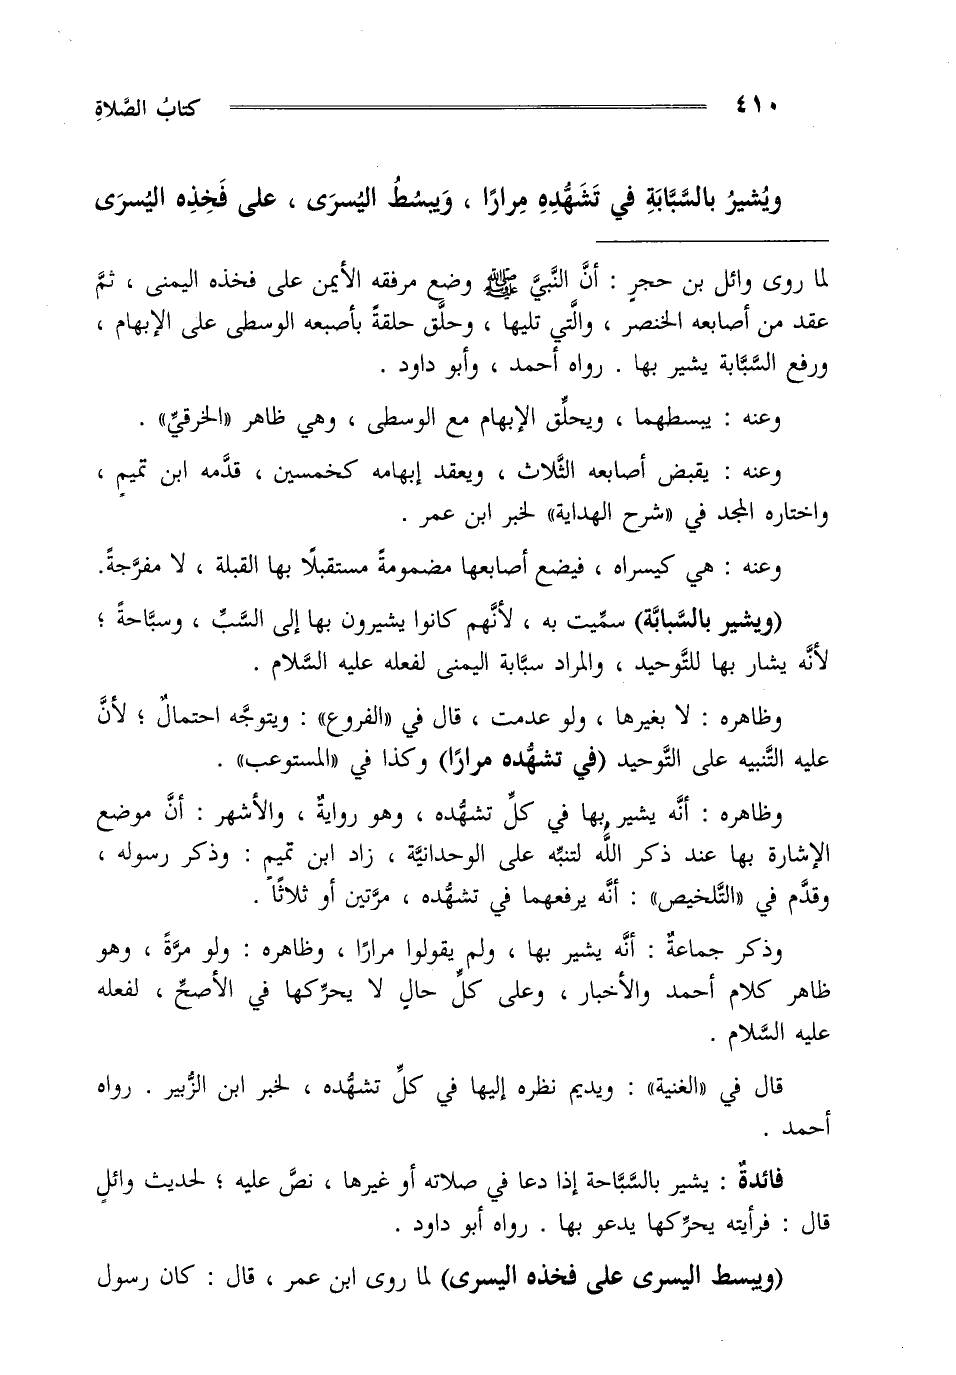 ٤١٠ كتابُ الصَّلاةِ
ويُشيرُ بالسَّبَّابَةِ في تَشَهُّدِهِ مِرارًا ، وَيبسُطُ اليُسرَى ، على فَخِذِه اليُسرَى
لما روى وائل بن حجرٍ : أنَّ النَّبيَّ ﷺ وضع مرفقه الأيمن على فخذه اليمنى ، ثمَّ
عقد من أصابعه الخنصر ، والَّتي تليها ، وحلَّق حلقةً بأصبعه الوسطى على الإبهام ،
ورفع السَّبَّابة يشير بها . رواه أحمد ، وأبو داود .
وعنه : يبسطهما ، ويحلِّق الإبهام مع الوسطى ، وهي ظاهر «الخرقيِّ» .
وعنه : يقبض أصابعه الثَّلاث ، ويعقد إبهامه كخمسين ، قدَّمه ابن تميمٍ ،
واختاره المجد في «شرح الهداية» لخبر ابن عمر .
وعنه : هي كيسراه ، فيضع أصابعها مضمومةً مستقبلًا بها القبلة ، لا مفرَّجةً.
(ويشير بالسَّبابَّة) سمِّيت به ، لأنَّهم كانوا يشيرون بها إلى السَّبِّ ، وسبَّاحةً ؛
لأنَّه يشار بها للتَّوحيد ، والمراد سبَّابة اليمنى لفعله عليه السَّلام .
وظاهره : لا بغيرها ، ولو عدمت ، قال في «الفروع» : ويتوجَّه احتمالٌ ؛ لأنَّ
عليه التَّنبيه على التَّوحيد (في تشهُّده مرارًا) وكذا في «المستوعب» .
وظاهره : أنَّه يشير بها في كلِّ تشهُّده ، وهو روايةٌ ، والأشهر : أنَّ موضع
الإشارة بها عند ذكر اللَّه لتنبِّه على الوحدانيَّة ، زاد ابن تميمٍ : وذكر رسوله ،
وقدَّم في «التَّلخيص» : أنَّه يرفعهما في تشهُّده ، مرَّتين أو ثلاثًا .
وذكر جماعةٌ : أنَّه يشير بها ، ولم يقولوا مرارًا ، وظاهره : ولو مرَّةً ، وهو
ظاهر كلام أحمد والأخبار ، وعلى كلِّ حالٍ لا يحرِّكها في الأصحِّ ، لفعله
عليه السَّلام .
قال في «الغنية» : ويديم نظره إليها في كلِّ تشهُّده ، لخبر ابن الزُّبير . رواه
أحمد .
فائدةٌ : يشير بالسَّبَّاحة إذا دعا في صلاته أو غيرها ، نصَّ عليه ؛ لحديث وائلٍ
قال : فرأيته يحرِّكها يدعو بها . رواه أبو داود .
(ويبسط اليسرى على فخذه اليسرى) لما روى ابن عمر ، قال : كان رسول